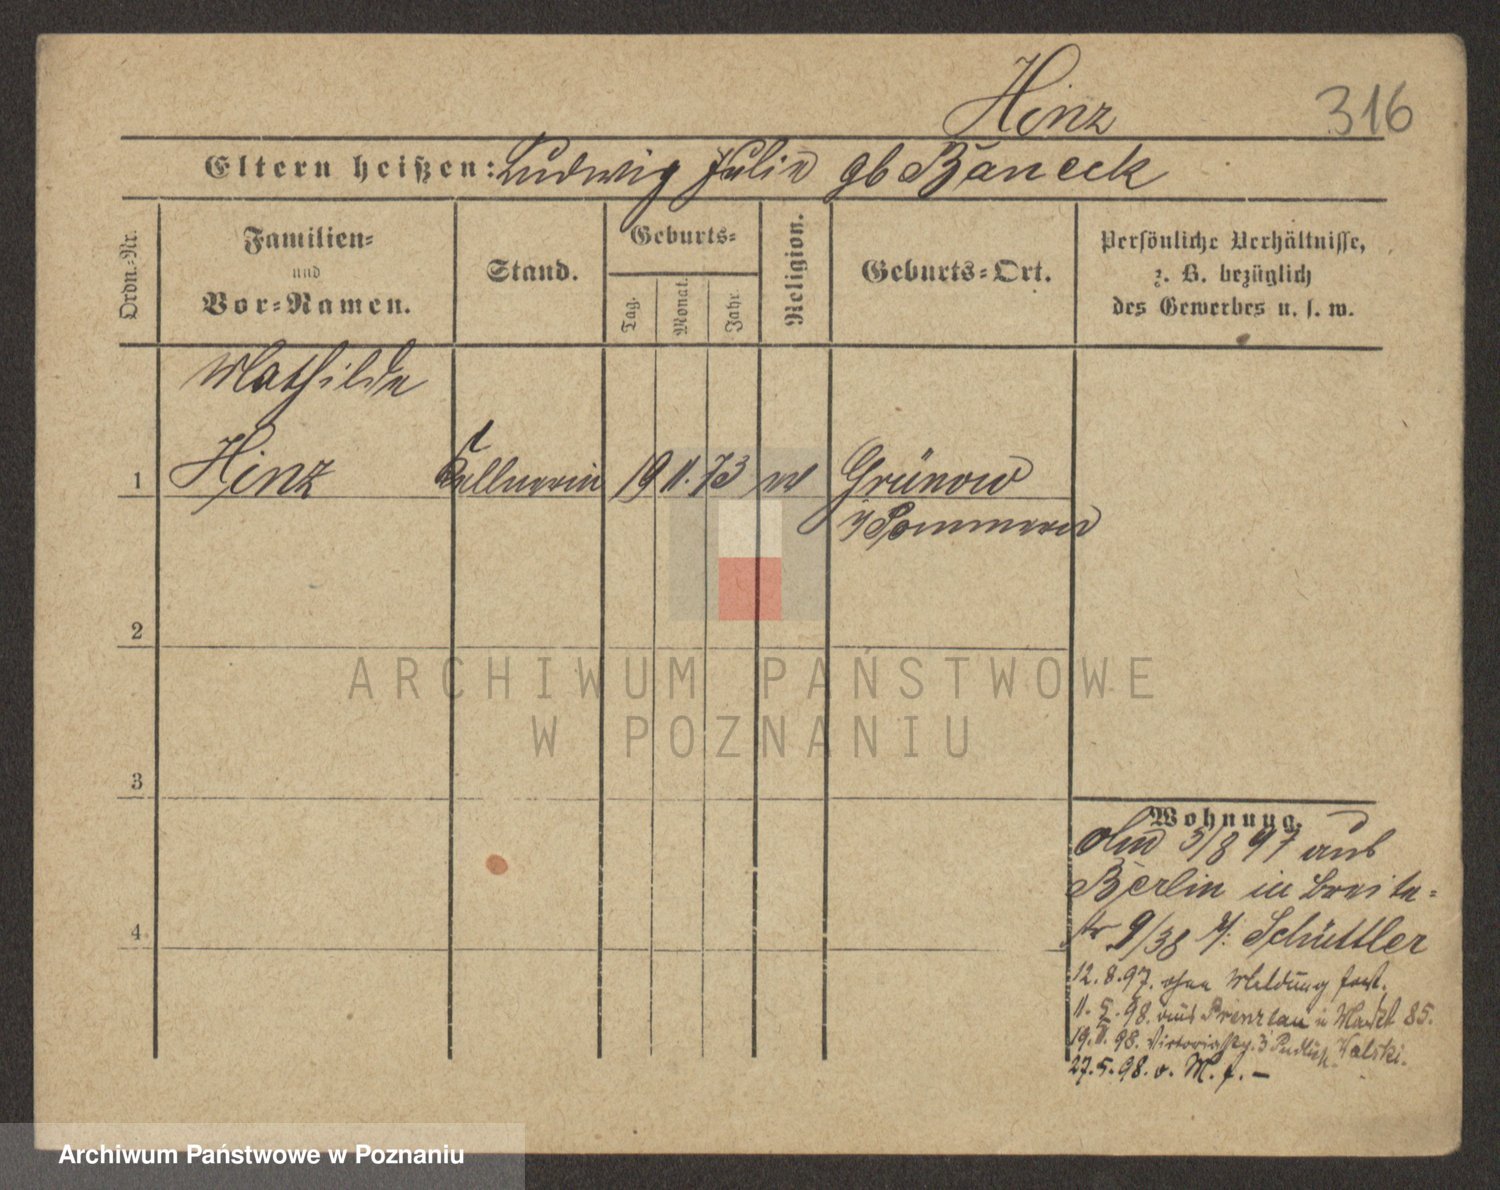 Hinz
316
Eltern heißen: Ludwig Julie gb Baneck
Ordn.-Nr.
Familien-
und
Vor-Namen.
Stand.
Geburts-
Tag.
Monat.
Jahr.
Religion.
Geburts-Ort.
Persönliche Verhältnisse,
z. B. bezüglich
des Gewerbes u. s. w.
Mathilde
1 Hinz Kellnerin 19 11. 73 Grünow
i/Pommern
2
3
4
Wohnung.
5/8 97 aus
Berlin in Breite-
str 9/38 Schüttler
12.8.97. ohne Meldung fort.
98. aus Prenzlau Markt 85.
19. 98. 3
27.5.98. o. M. f. –
ARCHIWUM PAŃSTWOWE
W POZNANIU
Archiwum Państwowe w Poznaniu